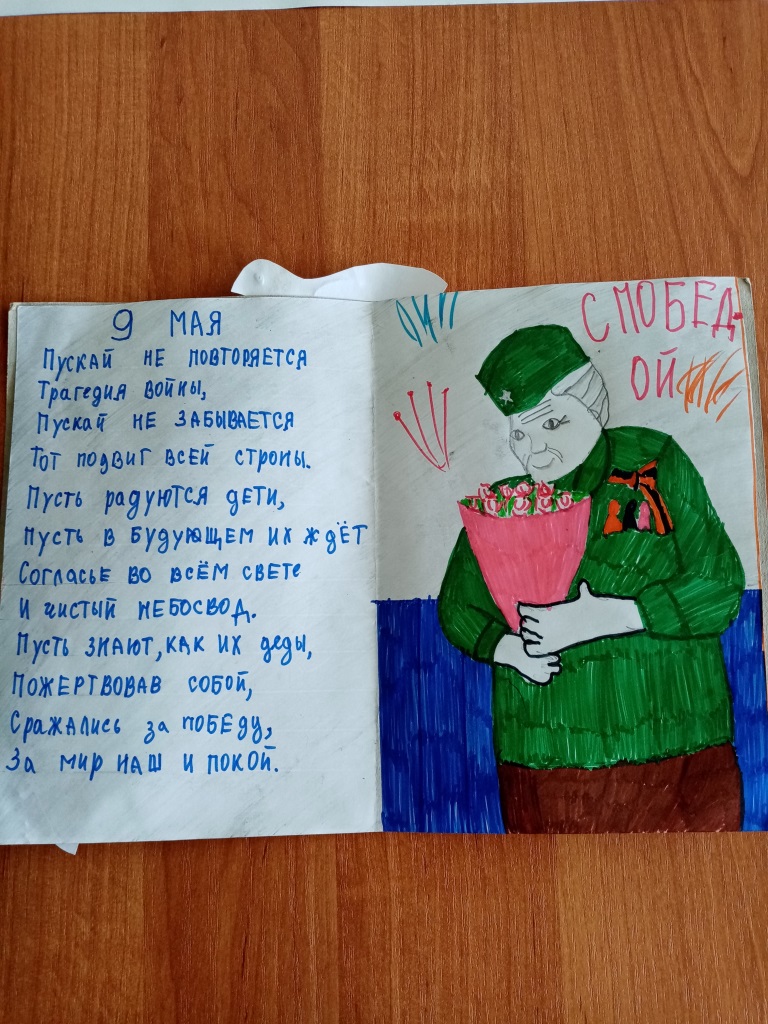 9 МАЯ
Пускай не повторяется
Трагедия войны,
Пускай не забывается
Тот подвиг всей строны.
Пусть радуются дети,
Пусть в будующем их ждёт
Согласье во всём свете
И чистый небосвод.
Пусть знают, как их деды,
Пожертвовав собой,
Сражались за победу,
За мир наш и покой.
С ПОБЕД
ОЙ